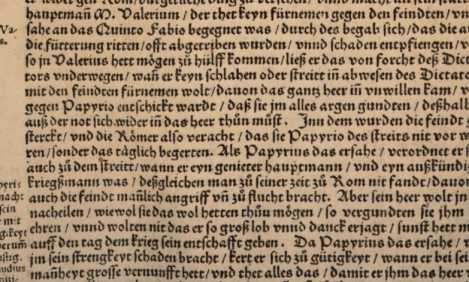 hauptman M. Valerium / der thet keyn fürnemen gegen den feindten / vn
sahe an das Quinto Fabio begegnet was / durch des begab sich / das die a
die fütterung ritten / offt abgetriben wurden / vnnd schaden entpfiengen / w
so jn Valerius hett mögen zů hülff kommen / ließ er das von forcht deß Dict
tors vnderwegen / wañ er keyn schlahen oder streitt iñ abwesen des Dictat
mit den feindten fürnemen wolt / dauon das gantz heer iñ vnwillen kam / v
gegen Papyrio entschickt wardt / daß sie jm alles argen gundten / deßhalb
auß der not sich wider iñ das heer thůn můst. Jnn dem wurden die feindt g
sterckt / vnd die Römer also veracht / das sie Papyrio des streits nit vor w
ren / sonder das täglich begerten. Als Papyrius das ersahe / verordnet er s
auch zů dem streitt / wann er eyn genieter hauptmann / vnd eyn außkündi
krießmann was / deßgleichen man zů seiner zeit zů Rom nit fandt / dauon
auch die feindt mañlich angriff vñ zů flucht bracht. Aber sein heer wolt jn
nacheilen / wiewol sie das wol hetten thůn mögen / so vergundten sie jhm
ehren / vnnd wolten nit das er so groß lob vnnd danck erjagt / sunst hett m
auff den tag dem krieg sein entschafft geben. Da Papyrius das ersahe / w
jm sein strengkeyt schaden bracht / kert er sich zů gütigkeyt / wann er bei se
mañheyt grosse vernunfft hett / vnd thet alles das / damit er jhm das heer